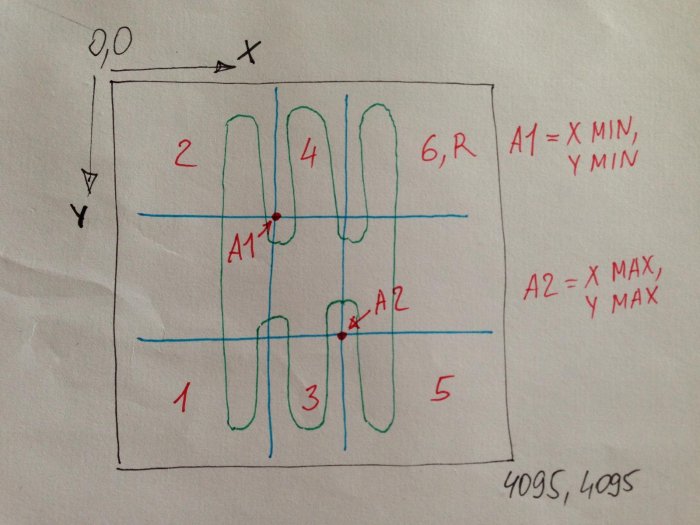 0,0
X
Y
2
4
6, R
A1 = X MIN,
Y MIN
A1
A2 = X MAX,
Y MAX
A2
1
3
5
4095, 4095